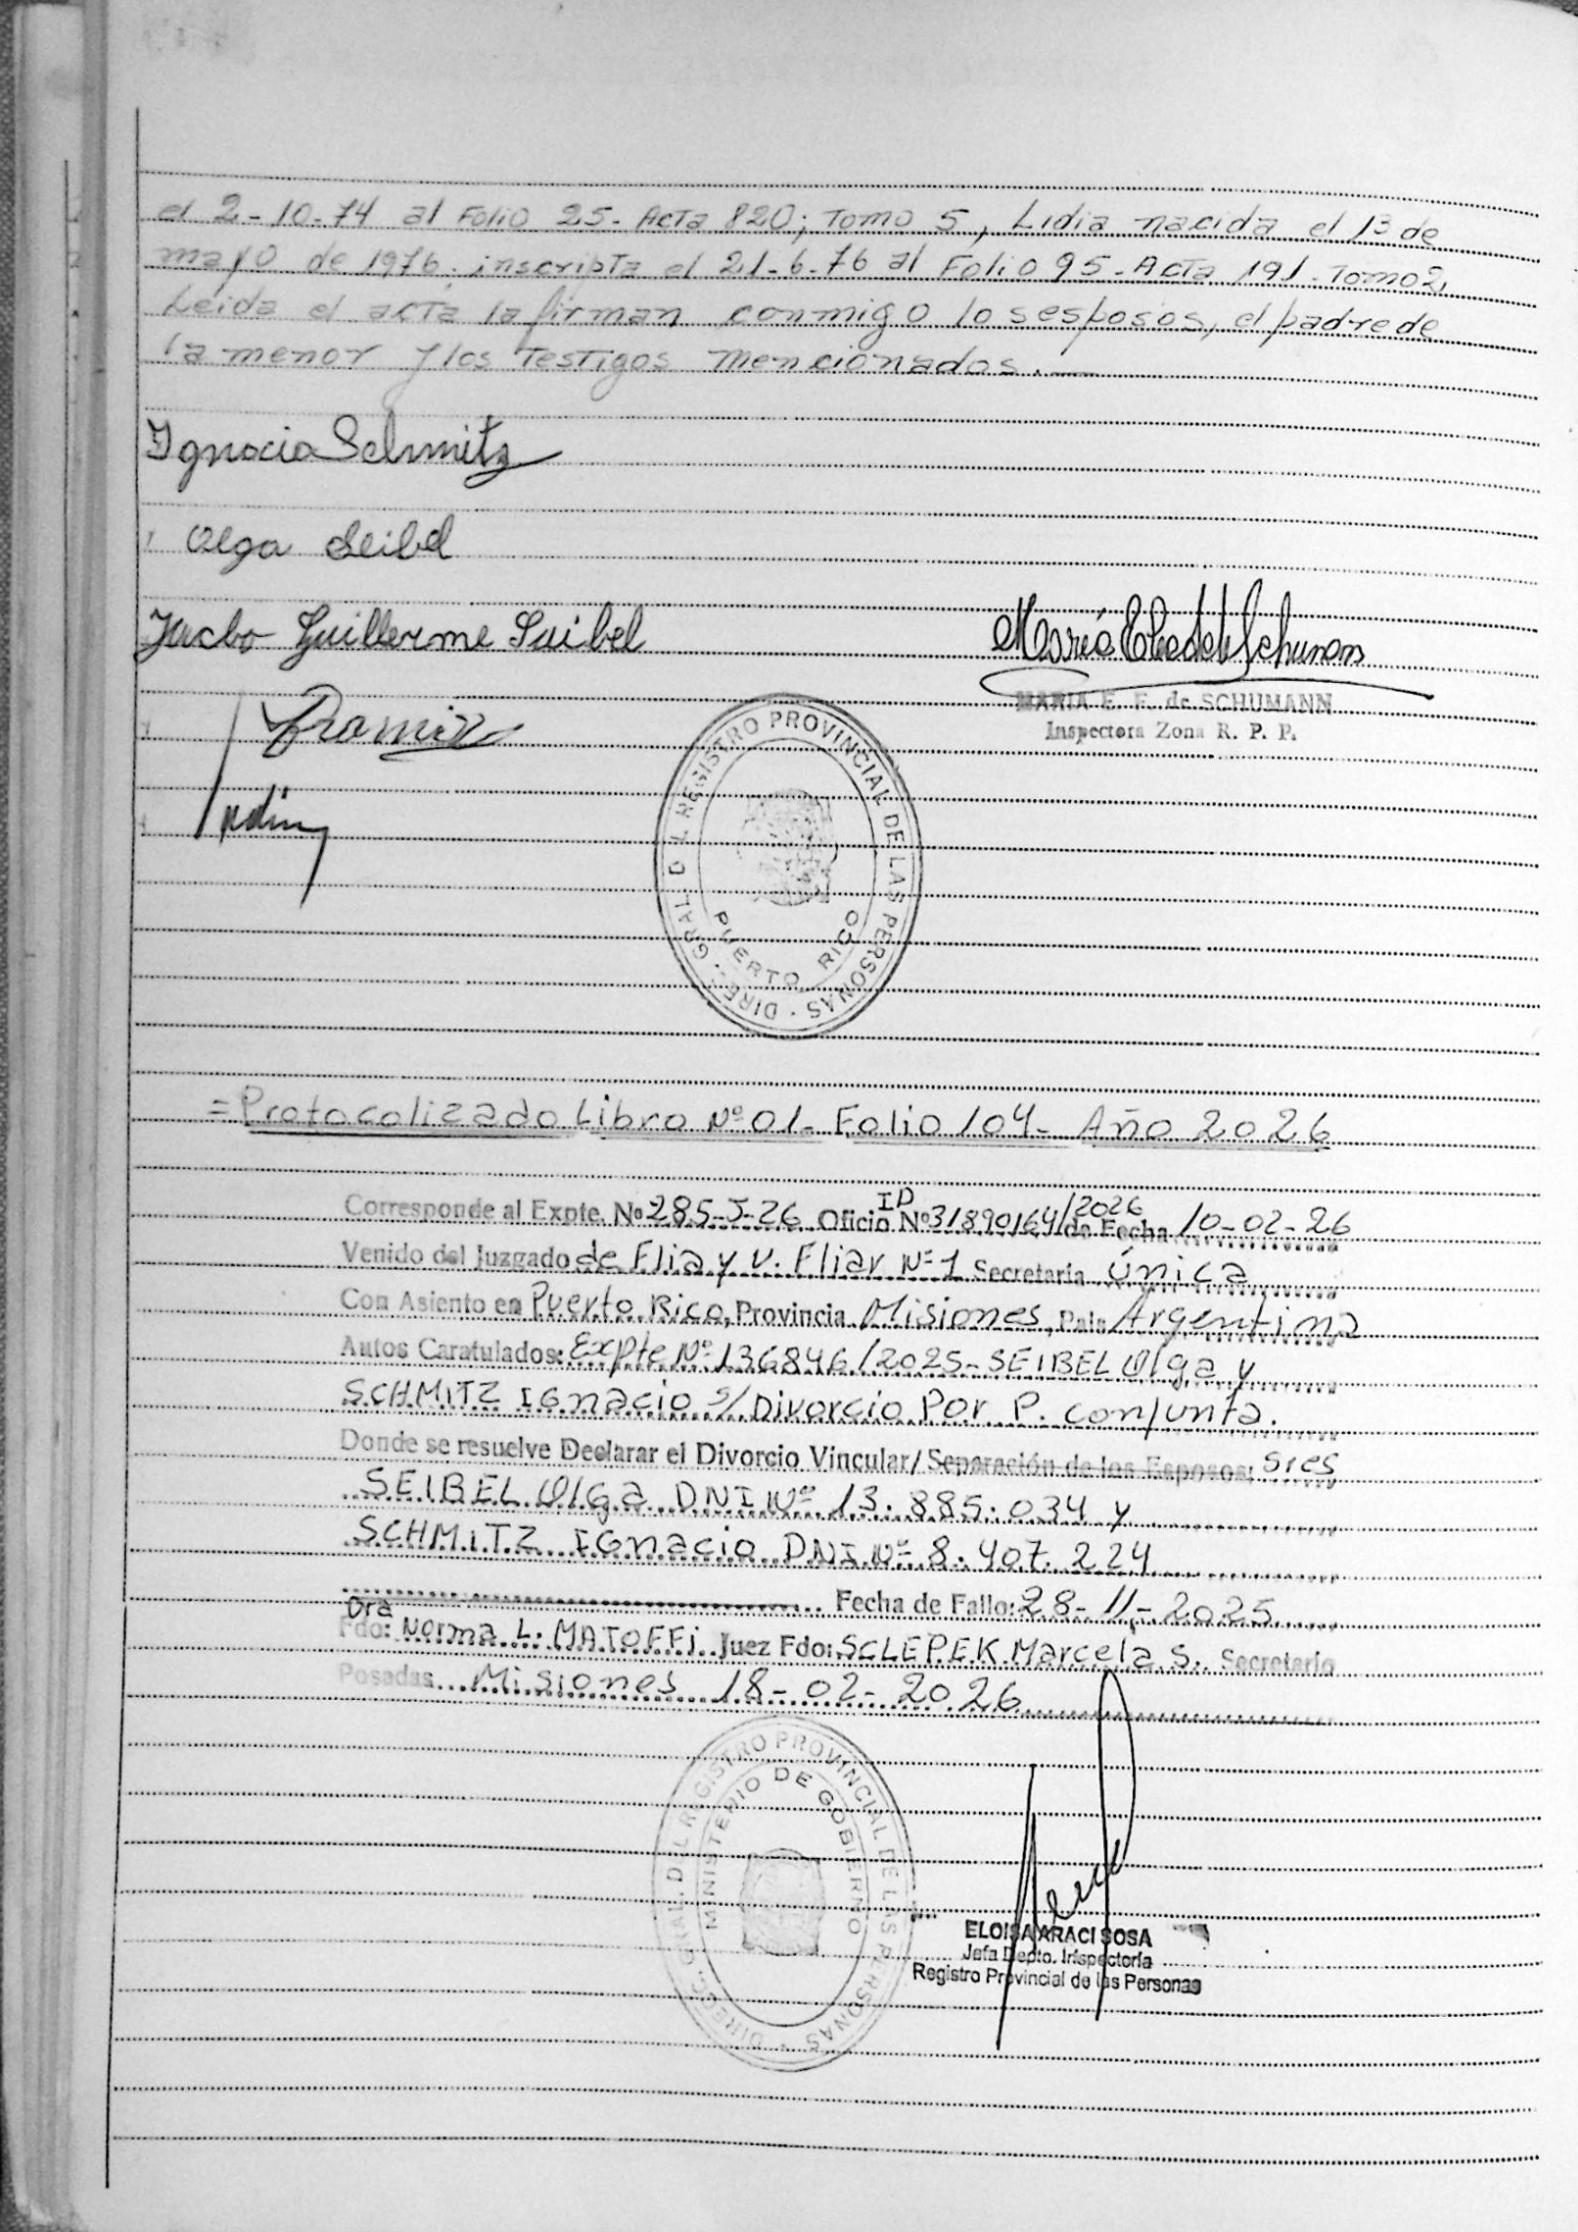 el 2-10-74 al Folio 25- Acta 820; Tomo 5, Lidia nacida el 13 de
mayo de 1976. inscripta el 21-6-76 al Folio 95-Acta 191-Tomo 2,
Leida el acta la firman conmigo los esposos, el padre de
la menor y los Testigos mencionados.
Ignacio Schmitz
Olga Seibel
Jacbo Guillerme Saibel
MARIA E. F. de SCHUMANN
Inspectora Zona R. P. P.
DIREC. GRAL. D L REGISTRO PROVINCIAL DE LAS PERSONAS
PUERTO RICO
=Protocolizado Libro Nº 01- Folio 104- Año 2026
Corresponde al Expte. Nº 285-J-26 Oficio ID Nº 31890164/2026 de Fecha 10-02-26
Venido del Juzgado de Flia y V. Fliar Nº 1 Secretaria Única
Con Asiento en Puerto Rico, Provincia Misiones, Pais Argentina
Autos Caratulados: Expte Nº 136846/2025- SEIBEL Olga y
SCHMITZ IGnacio s/ Divorcio Por P. conjunta.
Donde se resuelve Declarar el Divorcio Vincular/ Separación de los Esposos: sres
SEIBEL Olga DNI Nº 13.885.034 y
SCHMITZ IGnacio DNI Nº 8.407.224
Fecha de Fallo: 28-11-2025
Dra
Fdo: Norma L. MATOFFi Juez Fdo: SCLEPEK Marcela S. Secretario
Posadas Misiones 18-02-2026
DIREC. GRAL. D L REGISTRO PROVINCIAL DE LAS PERSONAS
MINISTERIO DE GOBIERNO
ELOISA ARACI SOSA
Jefa Depto. Inspectoría
Registro Provincial de las Personas